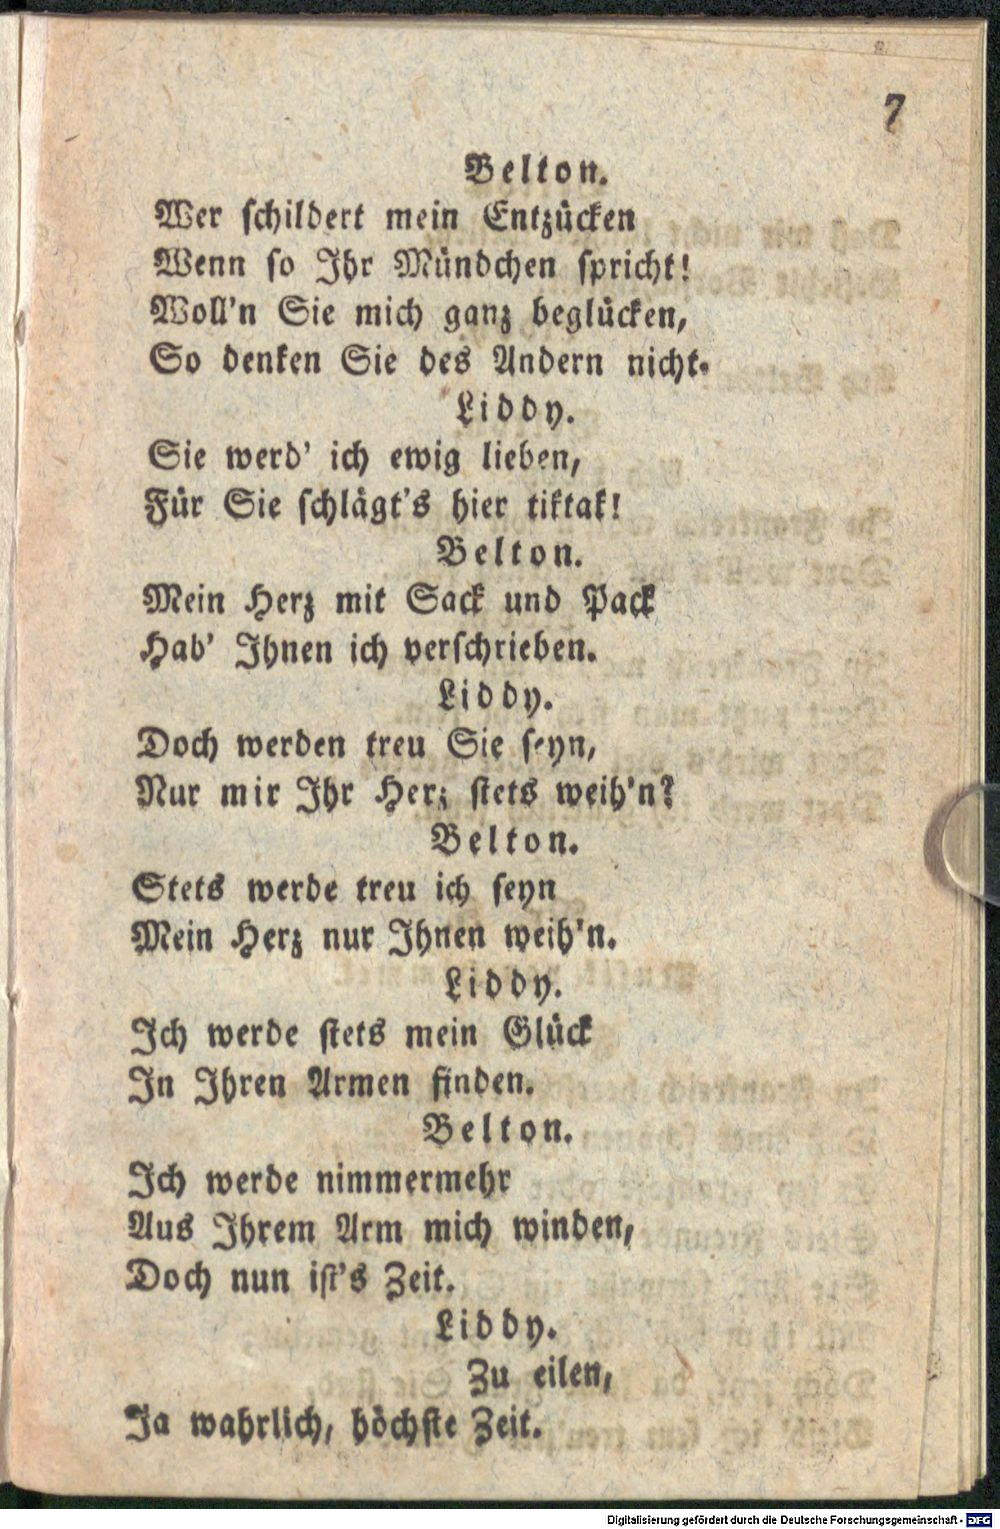 7
Belton.
Wer schildert mein Entzücken
Wenn so Ihr Mündchen spricht!
Woll'n Sie mich ganz beglücken,
So denken Sie des Andern nicht.
Liddy.
Sie werd' ich ewig lieben,
Für Sie schlägt's hier tiktak!
Belton.
Mein Herz mit Sack und Pack
Hab' Ihnen ich verschrieben.
Liddy.
Doch werden treu Sie seyn,
Nur mir Ihr Herz stets weih'n?
Belton.
Stets werde treu ich seyn
Mein Herz nur Ihnen weih'n.
Liddy.
Ich werde stets mein Glück
In Ihren Armen finden.
Belton.
Ich werde nimmermehr
Aus Ihrem Arm mich winden,
Doch nun ist's Zeit.
Liddy.
Zu eilen,
Ja wahrlich, höchste Zeit.
Digitalisierung gefördert durch die Deutsche Forschungsgemeinschaft - DFG